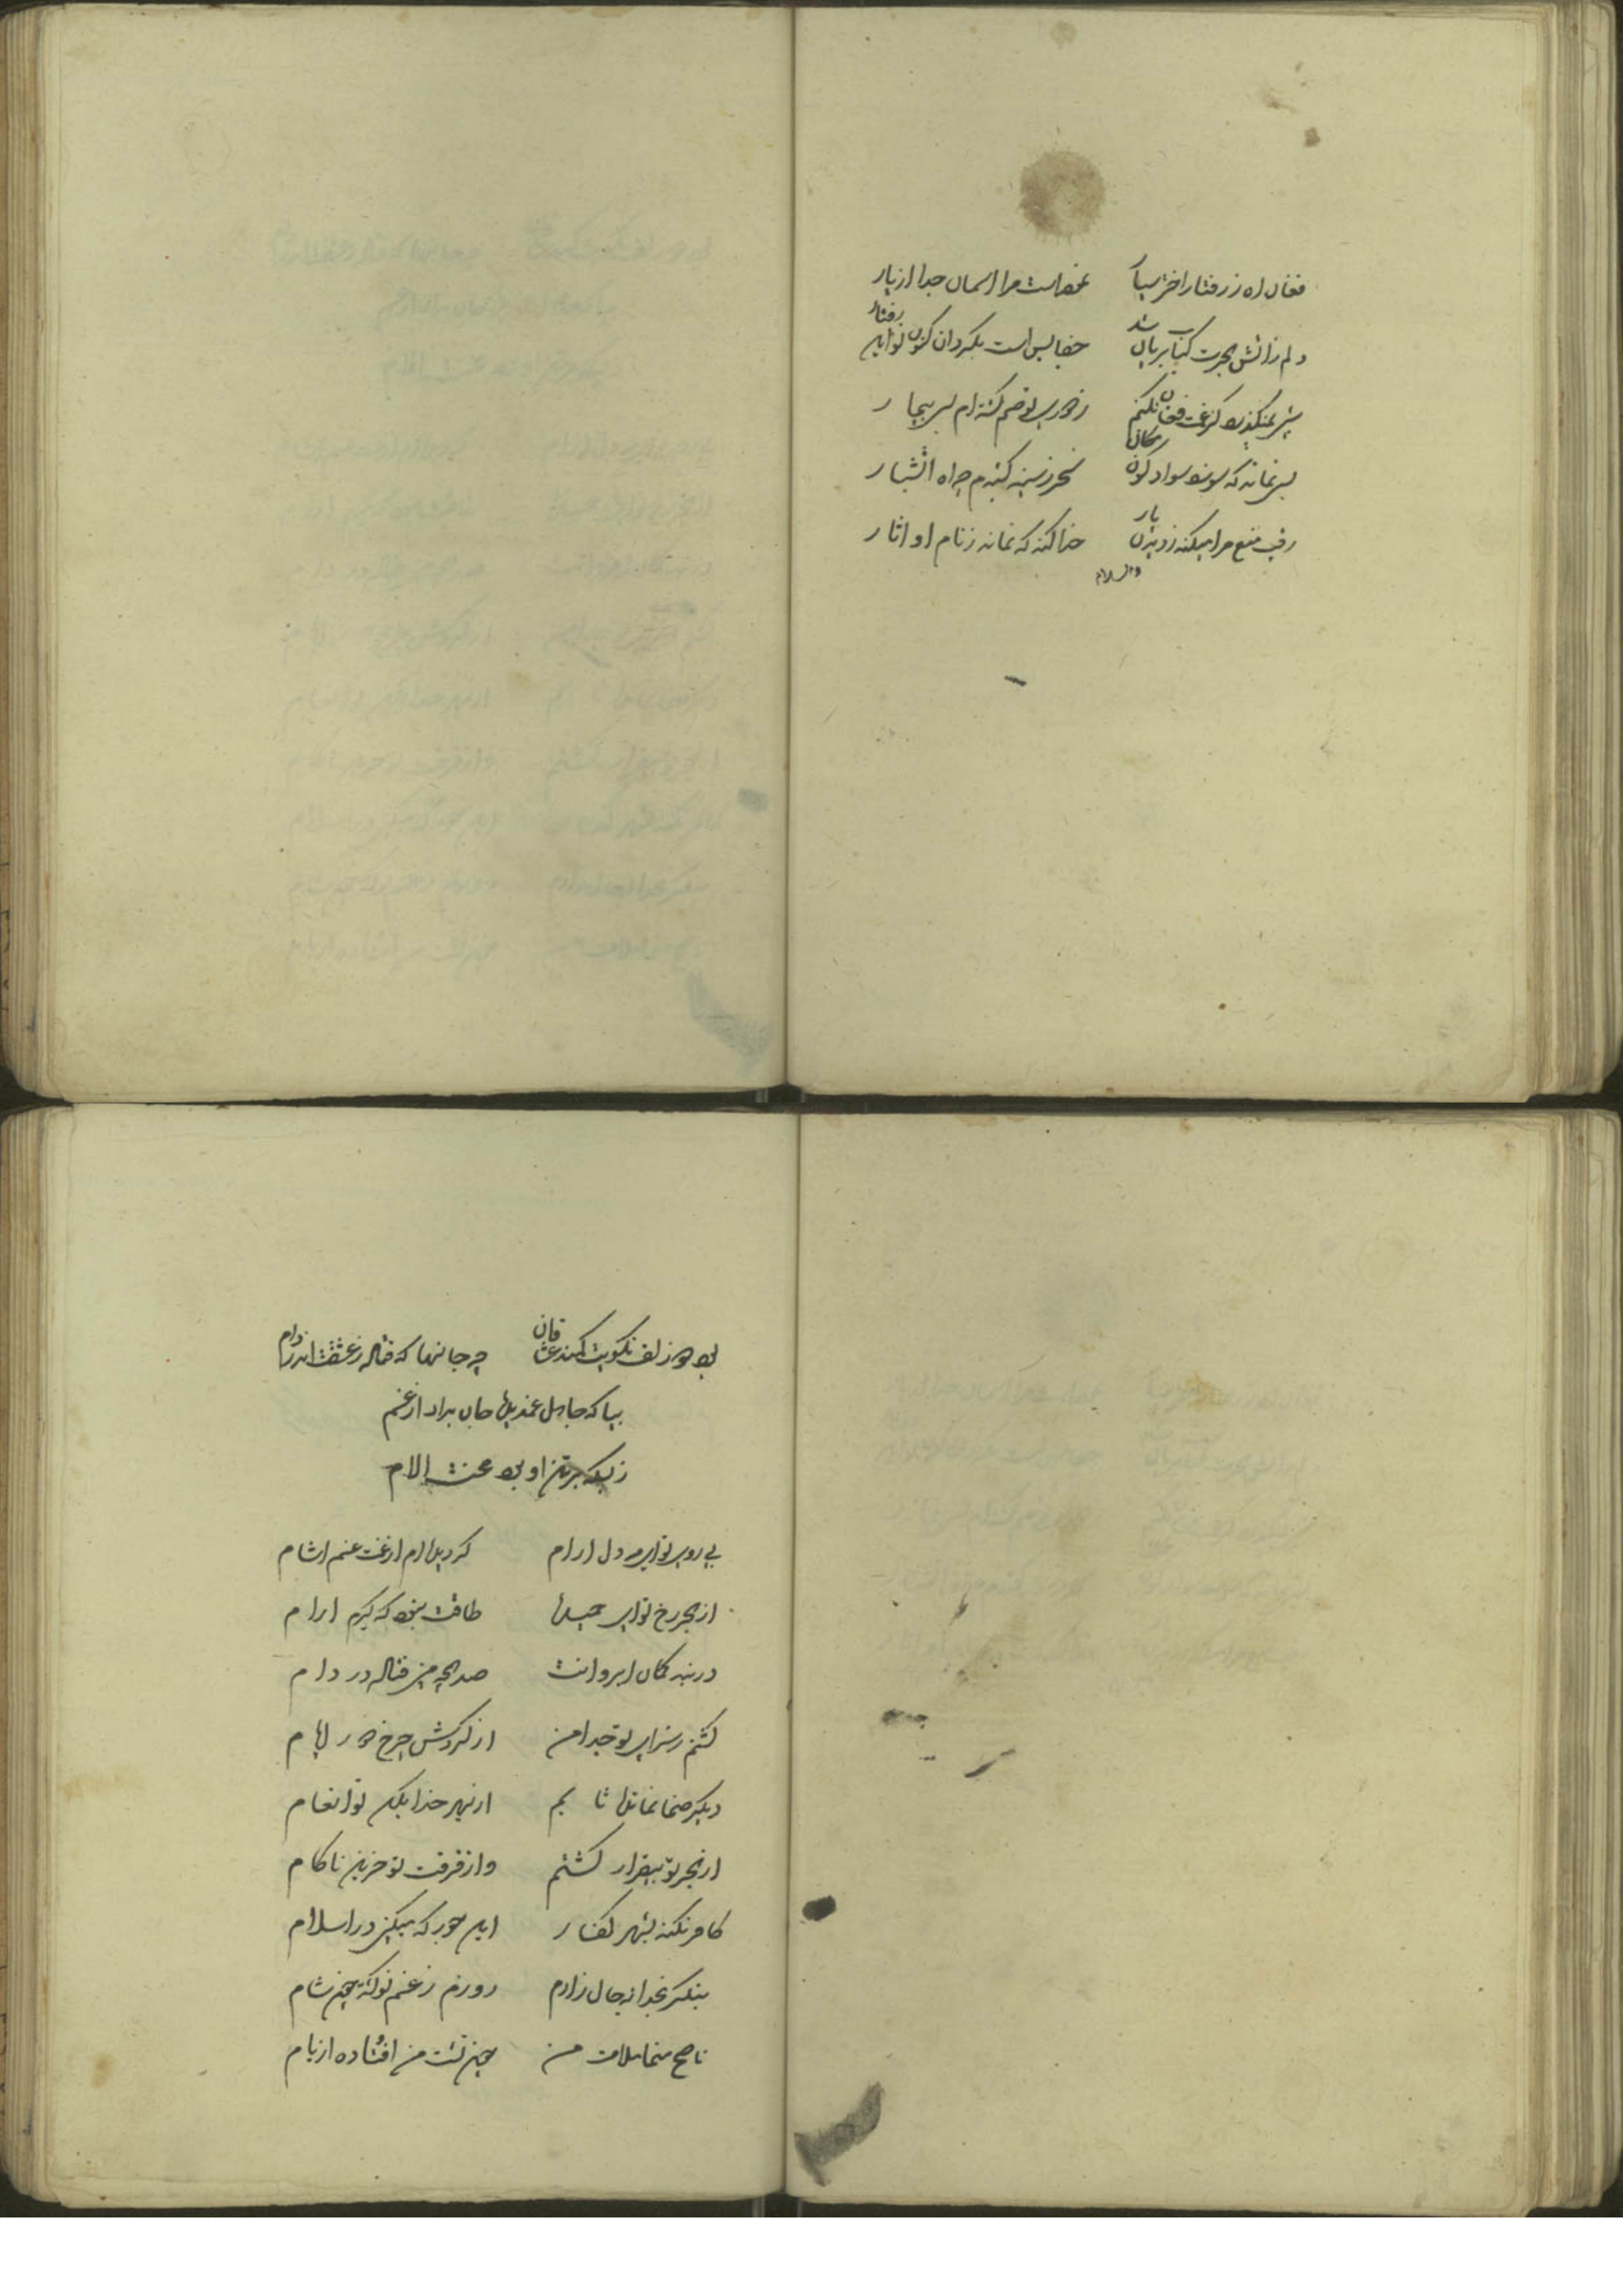 فغان اه ز رفتار اختر سیا نموداست مرا اسمان جدا از یار
دلم زاتش هجرت کباب بریان شد جفا بس است بکردان کنون تو این رفتار
شبی نمیگذرد کز غمت فغان نکنم ز دوری تو صنم کشته ام بسی بیمار
بسی نمانده که سوزد سواد کون مکان سحر ز سینه کشیدم چه اه اتشبار
رقیب منع مرا میکند ز دیدن یار خدا کند که نماند ز نام او اثار
والسلام
بود دو زلف نکویت کمند عشاقان چه جانها که فتاده ز عشقت اندر دام
بیا که جان برارد از غم
او بود محنت الام
بی روی تو ای مه دل ارام کردیده ام از غمت غم اشام
از هجر رخ تو ای طاقت نبود که کیرم ارام
در بند کمان ابروانت صد همچو من فتاده در دام
کشتم ز سرای تو جدا من از کردش چرخ دور ایام
دیکر صنما نمانده تابم از بهر خدا بکن تو انعام
از هجر تو بیقرار کشتم واز فرقت تو حزین ناکام
کافر نکند بشهر کفار این جور که میکنی در اسلام
بنکر بخدا بحال زارم روزم ز غم تو کشته چون شام
ناصح منما ملامت من چون تشت من افتاده از بام